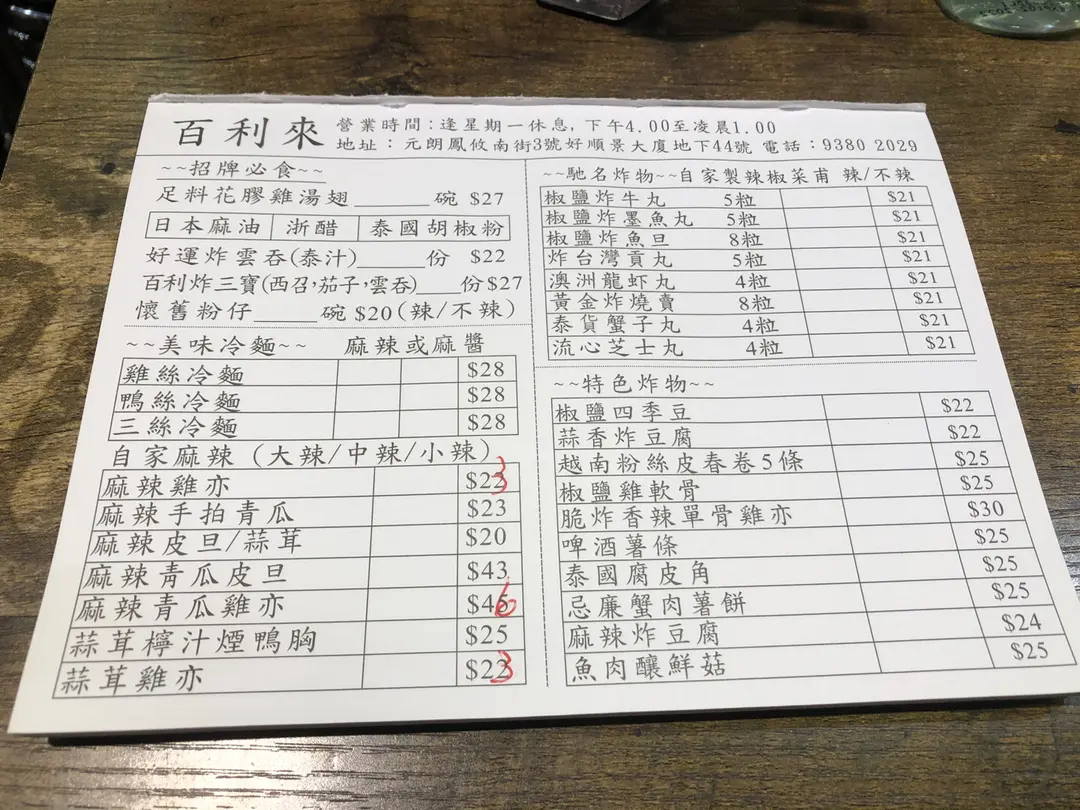 百利來
營業時間:逢星期一休息,下午4.00至凌晨1.00
地址:元朗鳳攸南街3號好順景大廈地下44號 電話:9380 2029
~~招牌必食~~
足料花膠雞湯翅______碗 $27
日本麻油 浙醋 泰國胡椒粉
好運炸雲吞(泰汁)______份 $22
百利炸三寶(西召,茄子,雲吞)____份$27
懷舊粉仔_____碗 $20(辣/不辣)
~~美味冷麵~~ 麻辣或麻醬
雞絲冷麵 $28
鴨絲冷麵 $28
三絲冷麵 $28
自家麻辣(大辣/中辣/小辣)
麻辣雞亦 $23
麻辣手拍青瓜 $23
麻辣皮旦/蒜茸 $20
麻辣青瓜皮旦 $43
麻辣青瓜雞亦 $46
蒜茸檸汁煙鴨胸 $25
蒜茸雞亦 $23
~~馳名炸物~~自家製辣椒菜甫 辣/不辣
椒鹽炸牛丸 5粒 $21
椒鹽炸墨魚丸 5粒 $21
椒鹽炸魚旦 8粒 $21
炸台灣貢丸 5粒 $21
澳洲龍虾丸 4粒 $21
黃金炸燒賣 8粒 $21
泰貨蟹子丸 4粒 $21
流心芝士丸 4粒 $21
~~特色炸物~~
椒鹽四季豆 $22
蒜香炸豆腐 $22
越南粉絲皮春卷5條 $25
椒鹽雞軟骨 $25
脆炸香辣單骨雞亦 $30
啤酒薯條 $25
泰國腐皮角 $25
忌廉蟹肉薯餅 $25
麻辣炸豆腐 $24
魚肉釀鮮菇 $25